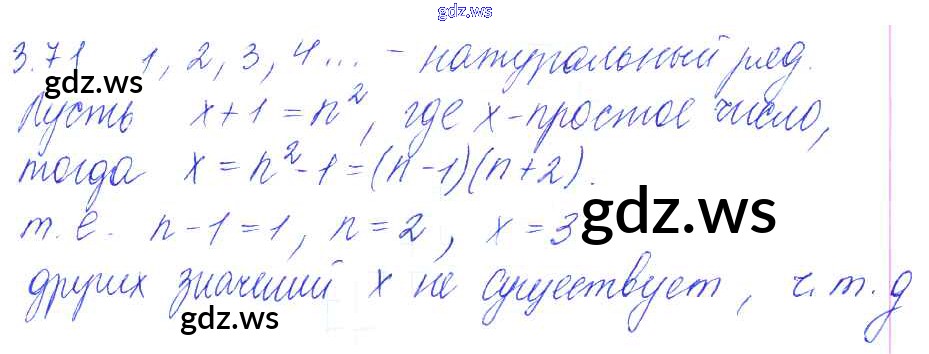 gdz.ws
3.71 1, 2, 3, 4... - натуральный ряд.
gdz.ws
Пусть x + 1 = n², где x - простое число,
тогда x = n² - 1 = (n - 1)(n + 2).
gdz.ws
т. е. n - 1 = 1, n = 2, x = 3
других значений x не существует, ч. т. д
gdz.ws